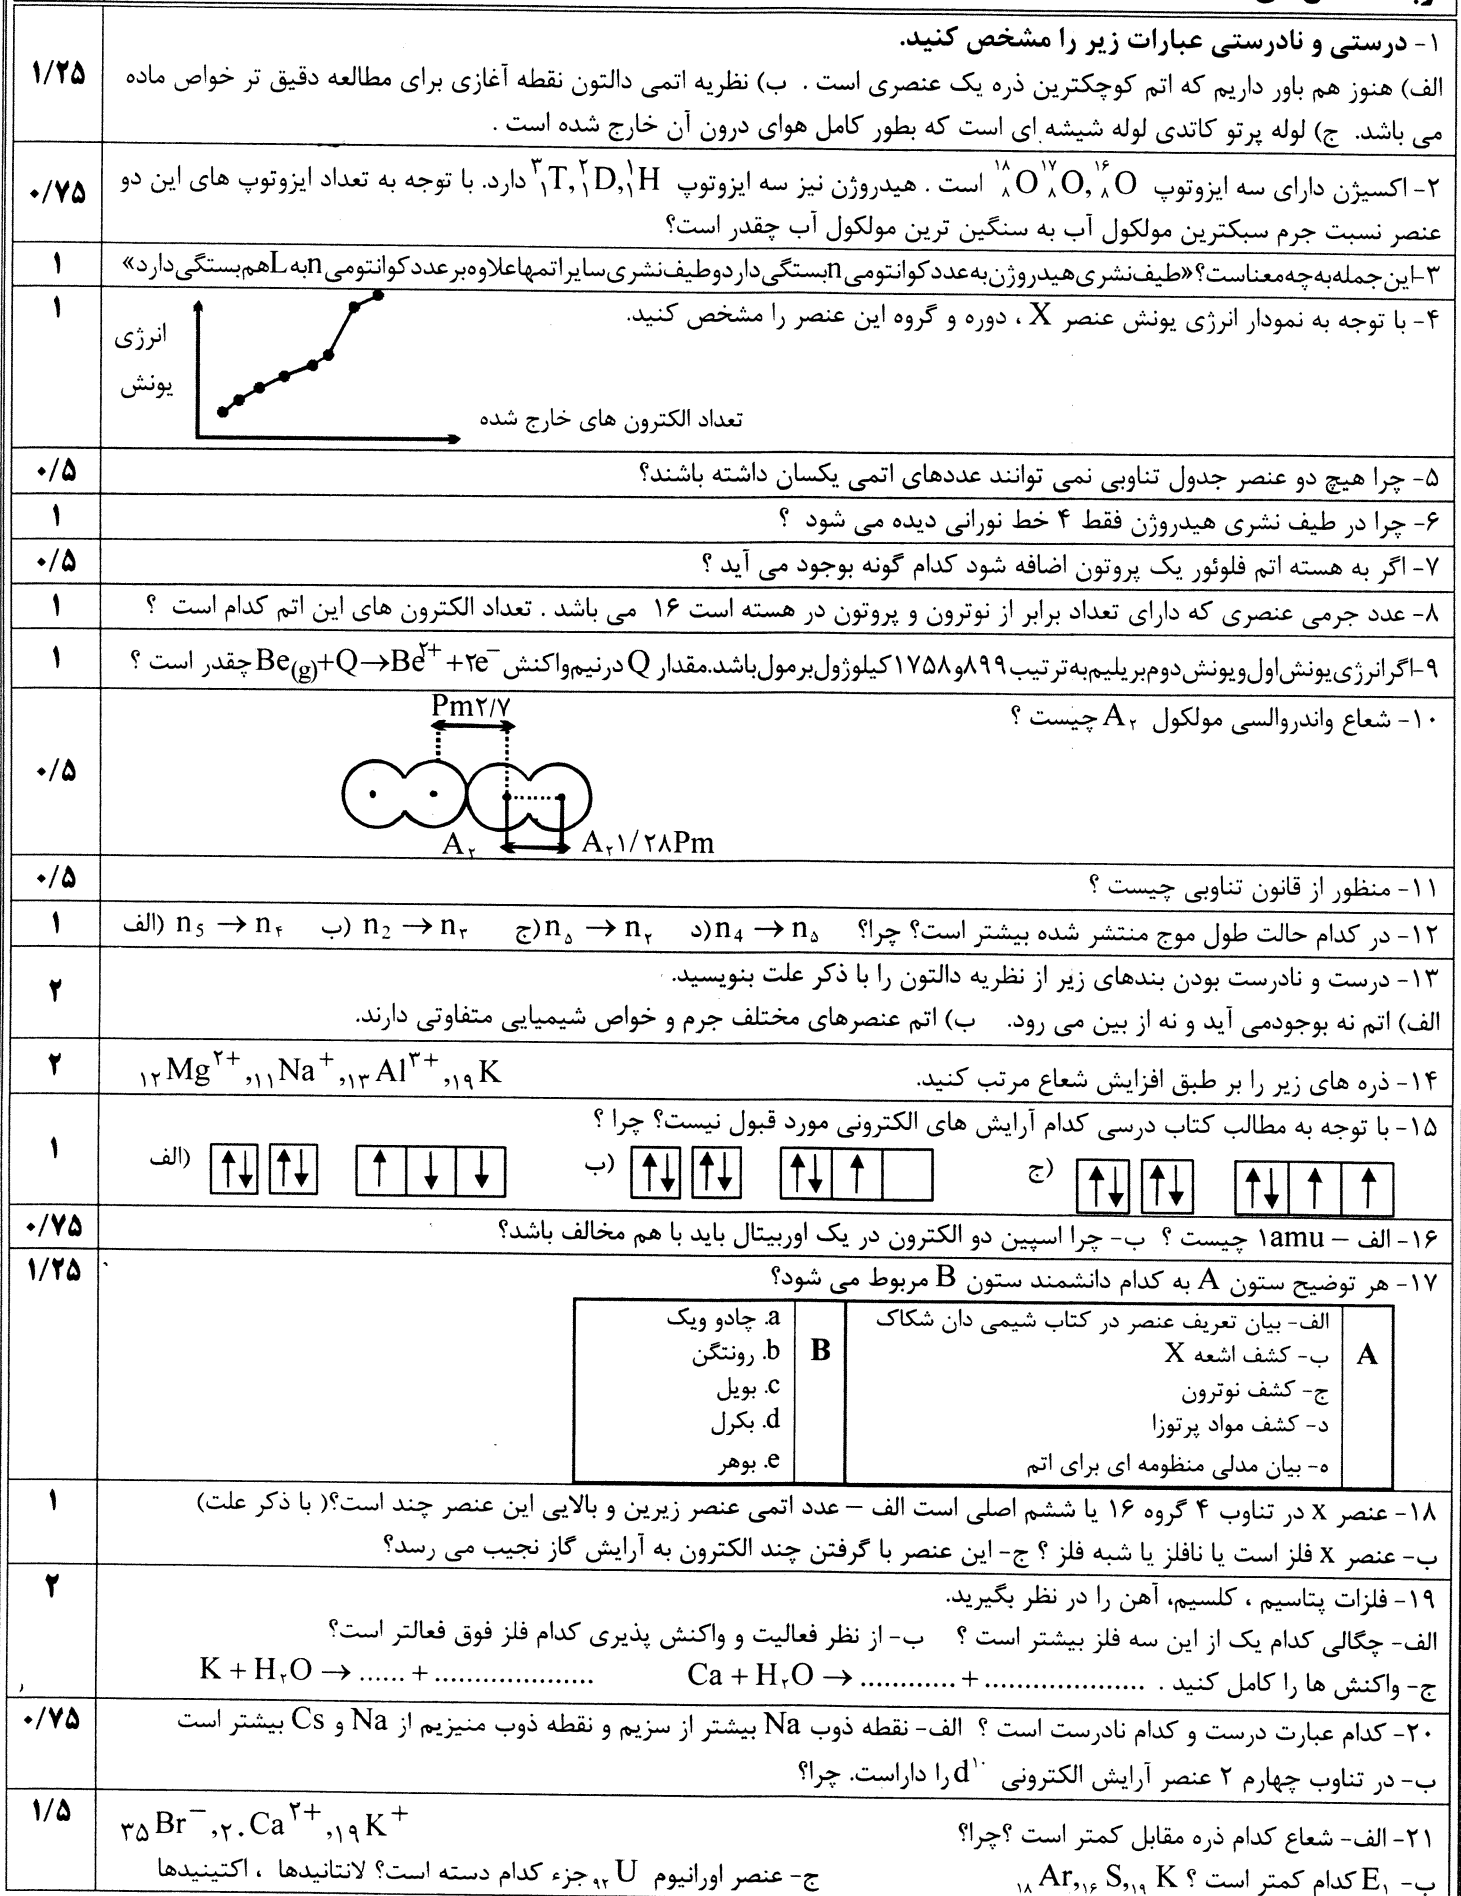 ۱- درستی و نادرستی عبارات زیر را مشخص کنید.
۱/۲۵
الف) هنوز هم باور داریم که اتم کوچکترین ذره یک عنصری است . ب) نظریه اتمی دالتون نقطه آغازی برای مطالعه دقیق تر خواص ماده
می باشد. ج) لوله پرتو کاتدی لوله شیشه ای است که بطور کامل هوای درون آن خارج شده است .
۲- اکسیژن دارای سه ایزوتوپ ¹⁸₈O ¹⁷₈O, ¹⁶₈O است . هیدروژن نیز سه ایزوتوپ ³₁T, ²₁D, ¹₁H دارد. با توجه به تعداد ایزوتوپ های این دو
۰/۷۵
عنصر نسبت جرم سبکترین مولکول آب به سنگین ترین مولکول آب چقدر است؟
۳-این جمله به چه معناست؟ «طیف نشری هیدروژن به عدد کوانتومی n بستگی دارد و طیف نشری سایر اتمها علاوه بر عدد کوانتومی n به L هم بستگی دارد»
۱
۴- با توجه به نمودار انرژی یونش عنصر X ، دوره و گروه این عنصر را مشخص کنید.
۱
انرژی
یونش
تعداد الکترون های خارج شده
۵- چرا هیچ دو عنصر جدول تناوبی نمی توانند عددهای اتمی یکسان داشته باشند؟
۰/۵
۶- چرا در طیف نشری هیدروژن فقط ۴ خط نورانی دیده می شود ؟
۱
۷- اگر به هسته اتم فلوئور یک پروتون اضافه شود کدام گونه بوجود می آید ؟
۰/۵
۸- عدد جرمی عنصری که دارای تعداد برابر از نوترون و پروتون در هسته است ۱۶ می باشد . تعداد الکترون های این اتم کدام است ؟
۱
۹-اگر انرژی یونش اول و یونش دوم بریلیم به ترتیب ۸۹۹ و ۱۷۵۸ کیلوژول بر مول باشد. مقدار Q در نیم واکنش Be(g)+Q→Be²⁺+۲e⁻ چقدر است ؟
۱
۱۰- شعاع واندروالسی مولکول A₂ چیست ؟
۰/۵
Pm۲/۷
A₂
A₂۱/۲۸Pm
۱۱- منظور از قانون تناوبی چیست ؟
۰/۵
۱۲- در کدام حالت طول موج منتشر شده بیشتر است؟ چرا؟ الف) n₅ → n₄ ب) n₂ → n₃ ج) n₅ → n₂ د) n₄ → n₅
۱
۱۳- درست و نادرست بودن بندهای زیر از نظریه دالتون را با ذکر علت بنویسید.
۲
الف) اتم نه بوجودمی آید و نه از بین می رود. ب) اتم عنصرهای مختلف جرم و خواص شیمیایی متفاوتی دارند.
۱۴- ذره های زیر را بر طبق افزایش شعاع مرتب کنید. ₁₂Mg²⁺,₁₁Na⁺,₁₃Al³⁺,₁₉K
۲
۱۵- با توجه به مطالب کتاب درسی کدام آرایش های الکترونی مورد قبول نیست؟ چرا ؟
۱
الف) ب) ج)
۱۶- الف – ۱amu چیست ؟ ب- چرا اسپین دو الکترون در یک اوربیتال باید با هم مخالف باشد؟
۰/۷۵
۱۷- هر توضیح ستون A به کدام دانشمند ستون B مربوط می شود؟
۱/۲۵
A
الف- بیان تعریف عنصر در کتاب شیمی دان شکاک
ب- کشف اشعه X
ج- کشف نوترون
د- کشف مواد پرتوزا
ه- بیان مدلی منظومه ای برای اتم
B
a. چادو ویک
b. رونتگن
c. بویل
d. بکرل
e. بوهر
۱۸- عنصر x در تناوب ۴ گروه ۱۶ یا ششم اصلی است الف – عدد اتمی عنصر زیرین و بالایی این عنصر چند است؟( با ذکر علت)
۱
ب- عنصر x فلز است یا نافلز یا شبه فلز ؟ ج- این عنصر با گرفتن چند الکترون به آرایش گاز نجیب می رسد؟
۱۹- فلزات پتاسیم ، کلسیم، آهن را در نظر بگیرید.
۲
الف- چگالی کدام یک از این سه فلز بیشتر است ؟ ب- از نظر فعالیت و واکنش پذیری کدام فلز فوق فعالتر است؟
ج- واکنش ها را کامل کنید . Ca + H₂O → ............ + ..................... K + H₂O → ...... + .....................
۲۰- کدام عبارت درست و کدام نادرست است ؟ الف- نقطه ذوب Na بیشتر از سزیم و نقطه ذوب منیزیم از Na و Cs بیشتر است
۰/۷۵
ب- در تناوب چهارم ۲ عنصر آرایش الکترونی d¹⁰ را داراست. چرا؟
۲۱- الف- شعاع کدام ذره مقابل کمتر است ؟چرا؟ ₃₅Br⁻,₂₀Ca²⁺,₁₉K⁺
۱/۵
ب- E₁ کدام کمتر است ؟ ₁₈Ar,₁₆S,₁₉K ج- عنصر اورانیوم ₉₂U جزء کدام دسته است؟ لانتانیدها ، اکتینیدها